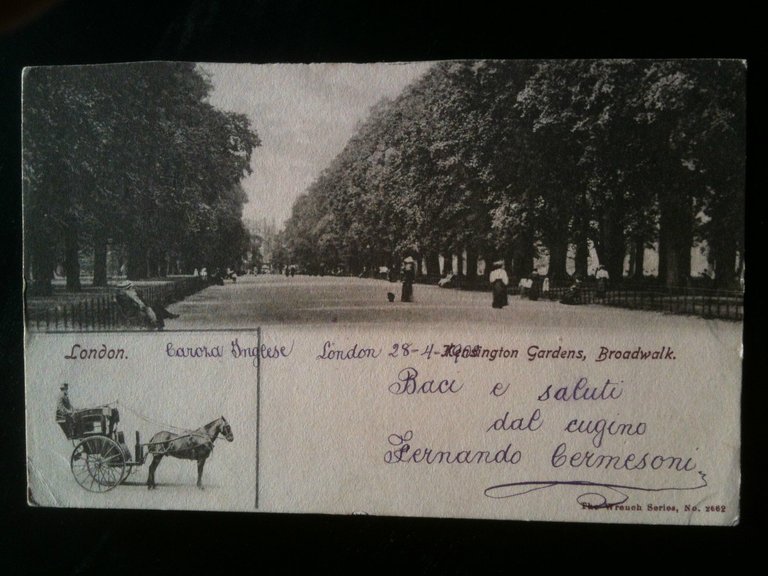 London.
Caroza Inglese
London 28-4-
Kensington Gardens, Broadwalk.
Baci e saluti
dal cugino
Fernando Cermesoni
The Wrench Series, No. 2662